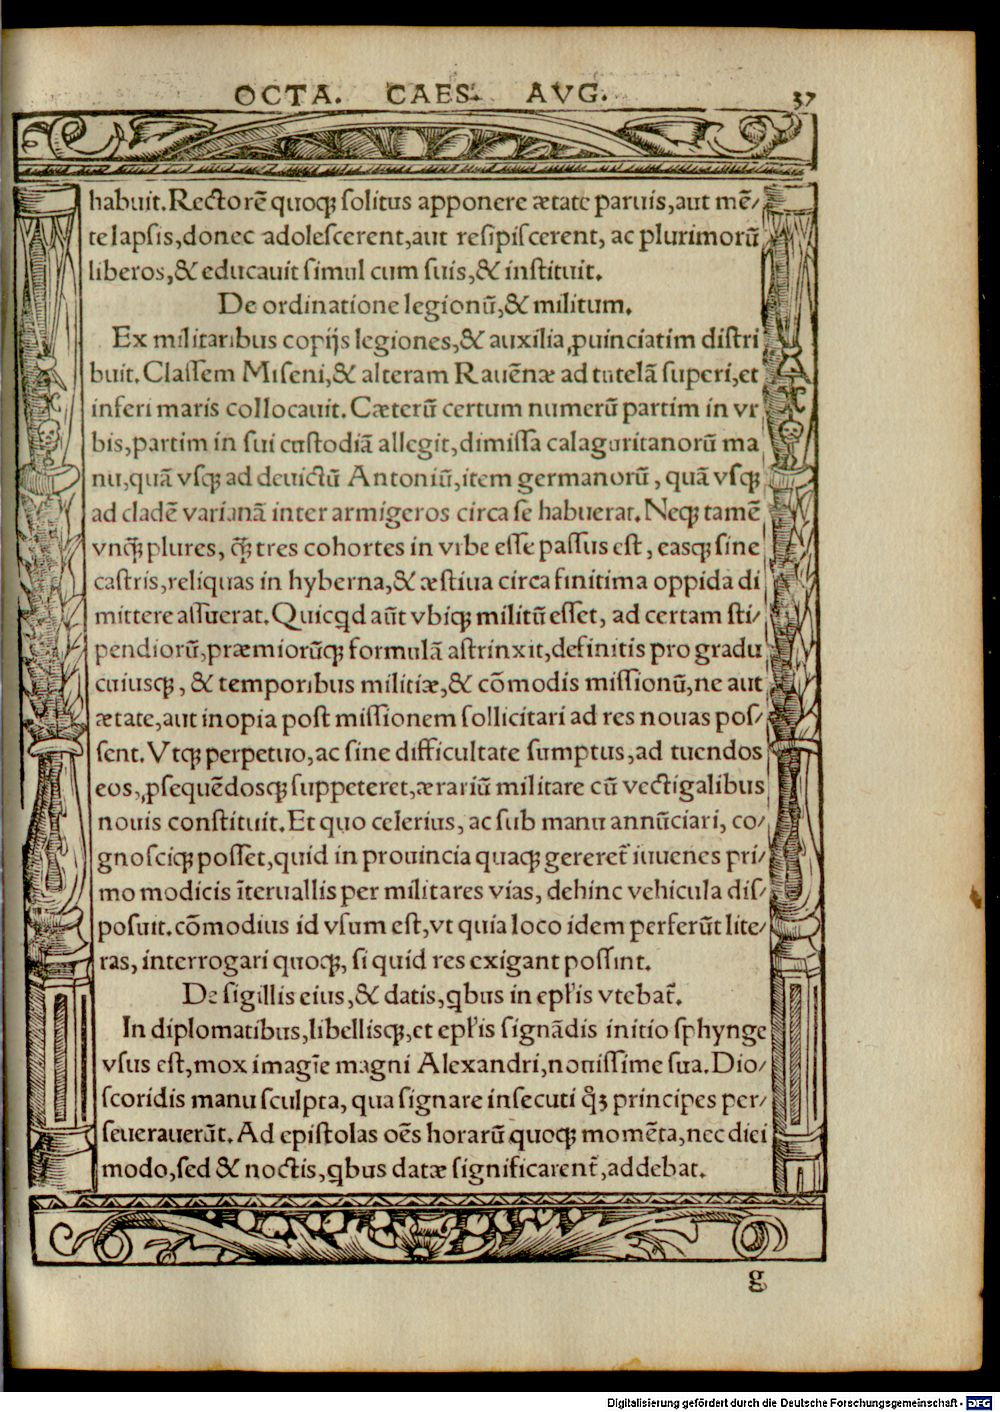 OCTA. CAES. AVG. 37
habuit. Rectorē quoqꝫ ſolitus apponere ætate paruis, aut mē/
te lapſis, donec adoleſcerent, aut reſipiſcerent, ac plurimorū
liberos, & educauit ſimul cum ſuis, & inſtituit.
De ordinatione legionū, & militum.
Ex militaribus copijs legiones, & auxilia ꝓuinciatim diſtri
buit. Claſſem Miſeni, & alteram Rauēnæ ad tutelā ſuperi, et
inferi maris collocauit. Cæterū certum numerū partim in vr
bis, partim in ſui cuſtodiā allegit, dimiſſa calaguritanorū ma
nu, quā vſqꝫ ad deuictū Antoniū, item germanorū, quā vſqꝫ
ad cladē varianā inter armigeros circa ſe habuerat. Neqꝫ tamē
vnq̄ꝫ plures, q̄ꝫ tres cohortes in vrbe eſſe paſſus eſt, easqꝫ ſine
caſtris, reliquas in hyberna, & æſtiua circa finitima oppida di
mittere aſſuerat. Quicqd aūt vbiqꝫ militū eſſet, ad certam ſti/
pendiorū, præmiorūqꝫ formulā aſtrinxit, definitis pro gradu
cuiusqꝫ, & temporibus militiæ, & cōmodis miſſionū, ne aut
ætate, aut inopia poſt miſſionem ſollicitari ad res nouas poſ/
ſent. Vtqꝫ perpetuo, ac ſine difficultate ſumptus, ad tuendos
eos, ꝓſequēdosqꝫ ſuppeteret, ærariū militare cū vectigalibus
nouis conſtituit. Et quo celerius, ac ſub manu annūciari, co/
gnoſciqꝫ poſſet, quid in prouincia quaqꝫ gereret̄ iuuenes pri/
mo modicis īteruallis per militares vias, dehinc vehicula diſ/
poſuit. cōmodius id vſum eſt, vt quia loco idem perferūt lite/
ras, interrogari quoqꝫ, ſi quid res exigant poſſint.
De ſigillis eius, & datis, qbus in epl̄is vtebat̄.
In diplomatibus, libellisqꝫ, et epl̄is ſignādis initio ſphynge
vſus eſt, mox imagīe magni Alexandri, nouiſſime ſua. Dio/
ſcoridis manu ſculpta, qua ſignare inſecuti q̄ꝫ principes per/
ſeuerauerāt. Ad epiſtolas oēs horarū quoqꝫ momēta, nec diei
modo, ſed & noctis, qbus datæ ſignificarent̄, addebat.
g
Digitalisierung gefördert durch die Deutsche Forschungsgemeinschaft - DFG